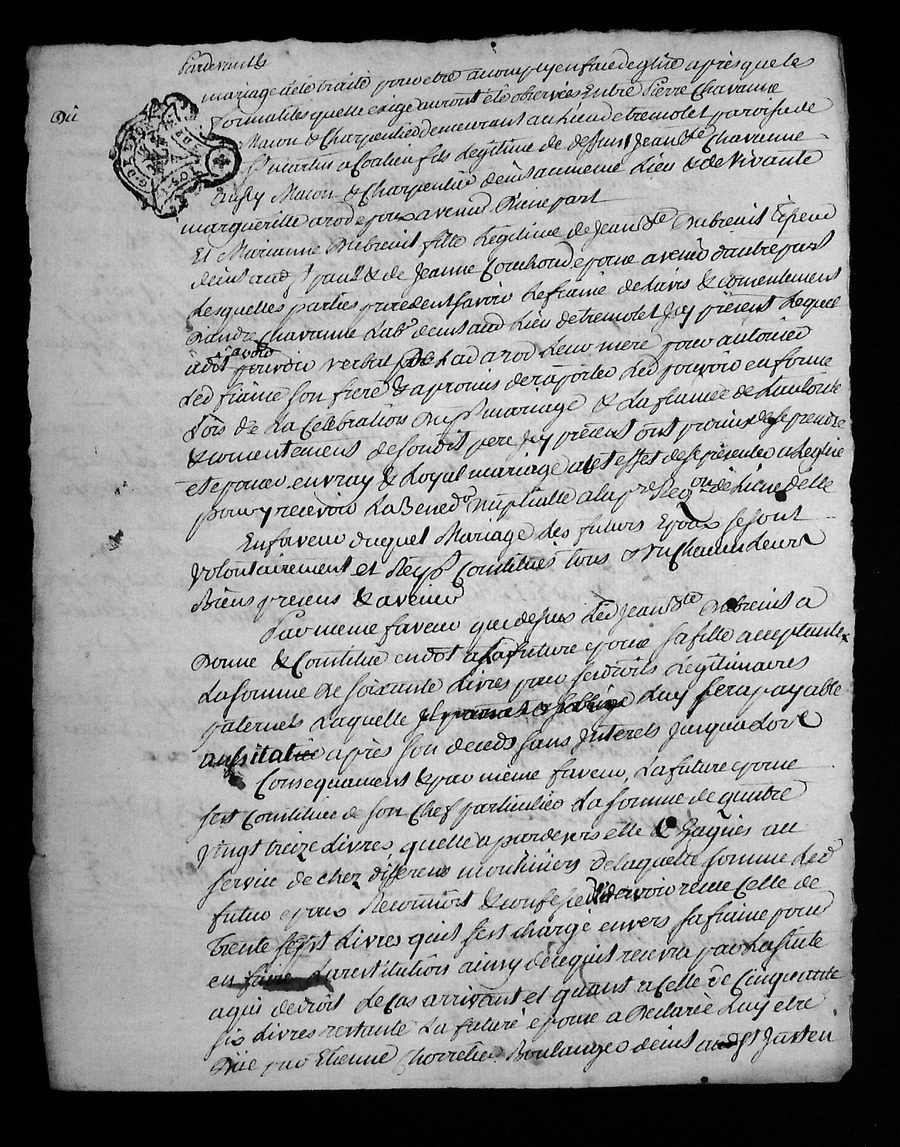 Pardevant le
Du
mariage a été traité pour etre acomply en face deglise apres que les
formalités quelle exige auront été observées Entre Pierre Chavanne
Macon & Charpentier demeurant au Lieu de tremolet paroisse de
St martin a Coalieu fils Legitime de deffunt Jean Bte Chavanne
aussy Macon & Charpentier dud au meme Lieu & de vivante
margueritte arod epoux avenir Dune part
Et Marianne Dubreuil fille Legitime de Jean Bte Dubreuil
dud aud St paul & de Jeanne Couchoud epouse avenir dautre part
Lesquelles parties procedent savoir Le fiancé de Lavis & consentement
Dandré Chavanne Lab. dud aud Lieu de tremolet Icy présent Lequel
a dit avoir pouvoir verbal de Lad arod Leur mere pour autoriser
Led fiancé son frere & a promis de raporter Led pouvoir en forme
Lors de La Celebration du pnt mariage & La fiancée de Lautorité
& consentement de sondit pere Icy présent ont promis de se prendre
et epouser en vray & Loyal mariage a cet effet de se présenter a Leglise
pour y recevoir La Bened on Nuptialle a la pre Reqon de Lune delle
En faveur duquel Mariage Les futurs Epoux se sont
volontairement et Resp. Constitués tous & un Chacun Leurs
Biens presens & avenir
Par meme faveur que dessus Led Jean Bte Dubreuil a
Donné & Constitué en dot a La future epouse sa fille acceptante
La somme de soixante Livres pour ses droits Legitimaires
paternels Laquelle Luy sera payable
aussitot apres son deceds sans Interets jusqualors
Consequament & par meme faveur, La future epouse
sest Constituée de son Chef particulier La somme de quatre
Vingt treize Livres quelle a pardevers elle & Gagnés au
service de chez differens mouliniers de laquelle somme Led
futur epoux Reconnoit & confesse avoir recue Celle de
trente sept Livres quil sest chargé envers sa fiancé pour
en faire La restitution ainsy de ce quil recevra par La suite
a qui de droit Le Cas arrivant et quant a Celle de Cinquante
six Livres restante La future epouse a Déclarée Luy etre
Due par Etienne Chorretier Boulanger dud aud St